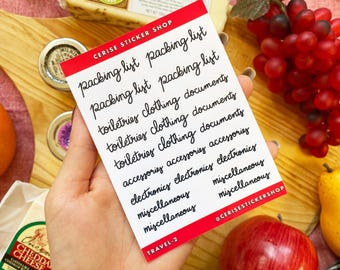 CERISE STICKER SHOP
packing list packing list
packing list packing list
toiletries clothing documents
toiletries clothing documents
toiletries clothing documents
accessories accessories accessories
electronics electronics electronics
miscellaneous miscellaneous
miscellaneous miscellaneous
TRAVEL-2
@CERISESTICKERSHOP
CHEDDAR
CHEESE